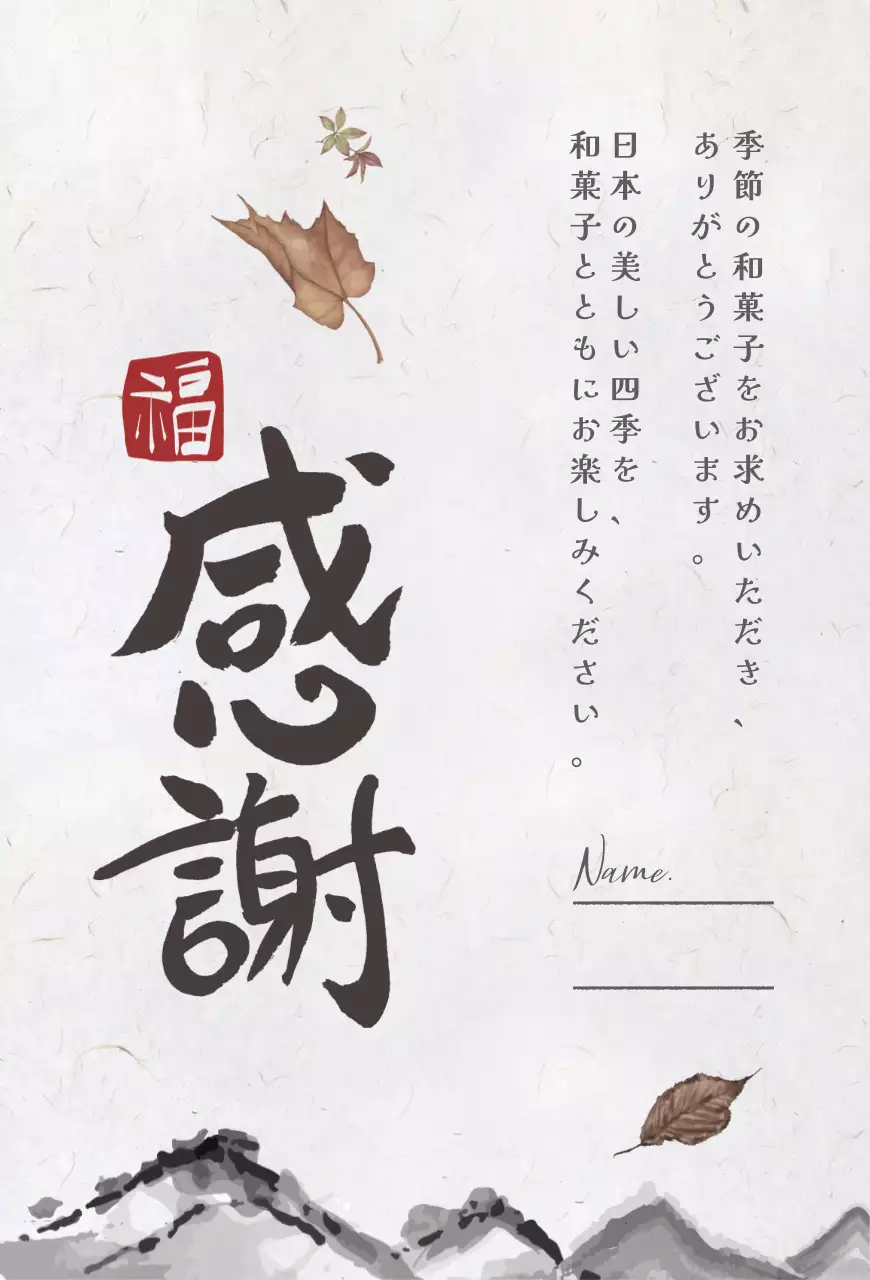 季節の和菓子をお求めいただき、
ありがとうございます。
日本の美しい四季を、
和菓子とともにお楽しみください。
福
感謝
Name.